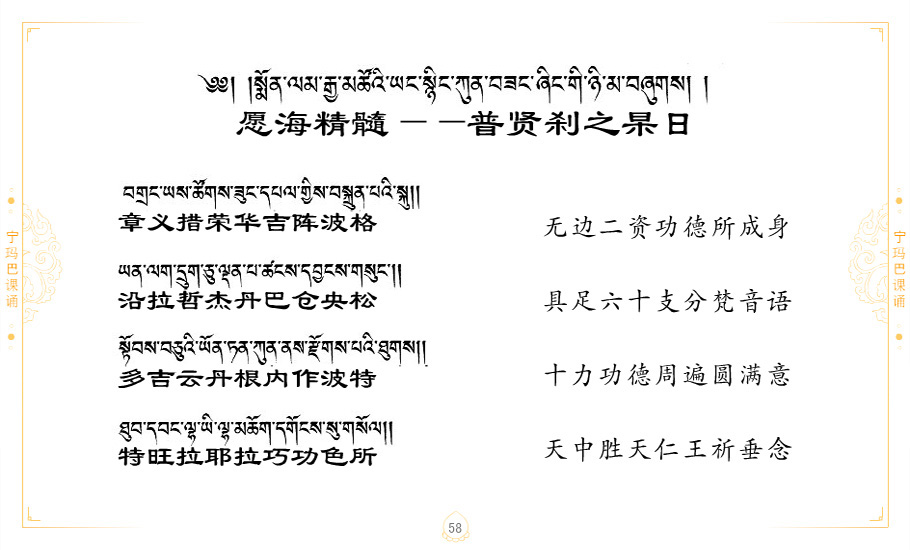 ༄༅། །སྨོན་ལམ་རྒྱ་མཚོའི་ཡང་སྙིང་ཀུན་བཟང་ཞིང་གི་ཉི་མ་བཞུགས། །
愿海精髓 — —普贤刹之杲日
བགྲང་ཡས་ཚོགས་ཟུང་དཔལ་གྱིས་བསྐྲུན་པའི་སྐུ།།
章义措荣华吉阵波格
无边二资功德所成身
ཡན་ལག་དྲུག་ཅུ་ལྡན་པ་ཚངས་དབྱངས་གསུང་།།
沿拉哲杰丹巴仓央松
具足六十支分梵音语
སྟོབས་བཅུའི་ཡོན་ཏན་ཀུན་ནས་རྫོགས་པའི་ཐུགས།།
多吉云丹根内作波特
十力功德周遍圆满意
ཐུབ་དབང་ལྷ་ཡི་ལྷ་མཆོག་དགོངས་སུ་གསོལ།།
特旺拉耶拉巧功色所
天中胜天仁王祈垂念
宁玛巴课诵
宁玛巴课诵
58